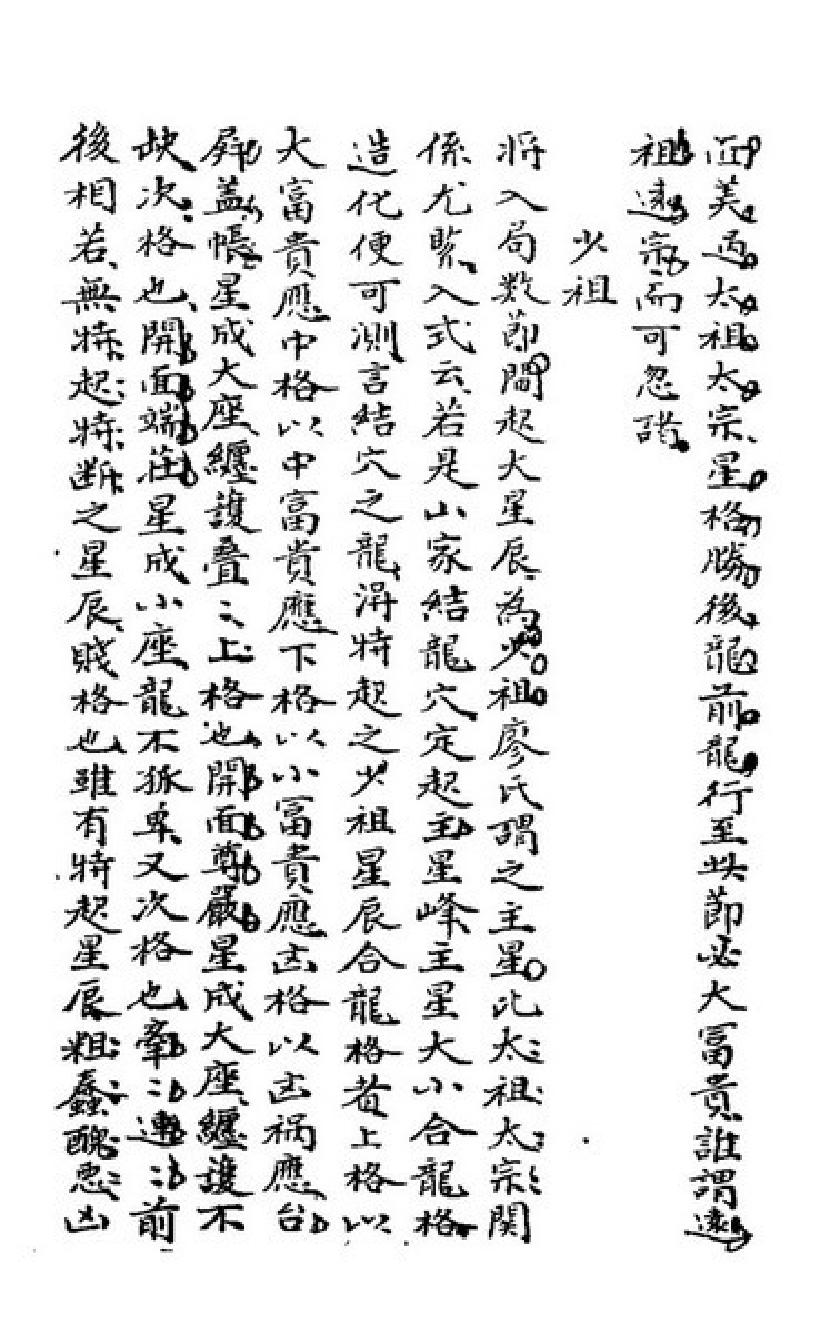 证美過太祖太宗星格勝後龍前龍行至此節必大冨貴誰謂遠
祖遠宗而可忽諸
少祖
将入局数節間起大星辰為少祖廖氏謂之主星此太祖太宗関
係尤緊入式云若是山家結龍穴定起主星峰主星大小合龍格
造化便可測言結穴之龍得特起之少祖星辰合龍格者上格以
大富貴應中格以中富貴應下格以小冨貴應凶格以凶禍應台
屏盖帳星成大座纏護叠〻上格也開面尊嚴星成大座纏護不
缺次格也開面端莊星成小座龍不孤單又次格也牽〻連〻前
後相若無特起特断之星辰賤格也雖有特起星辰粗蠢醜惡凶